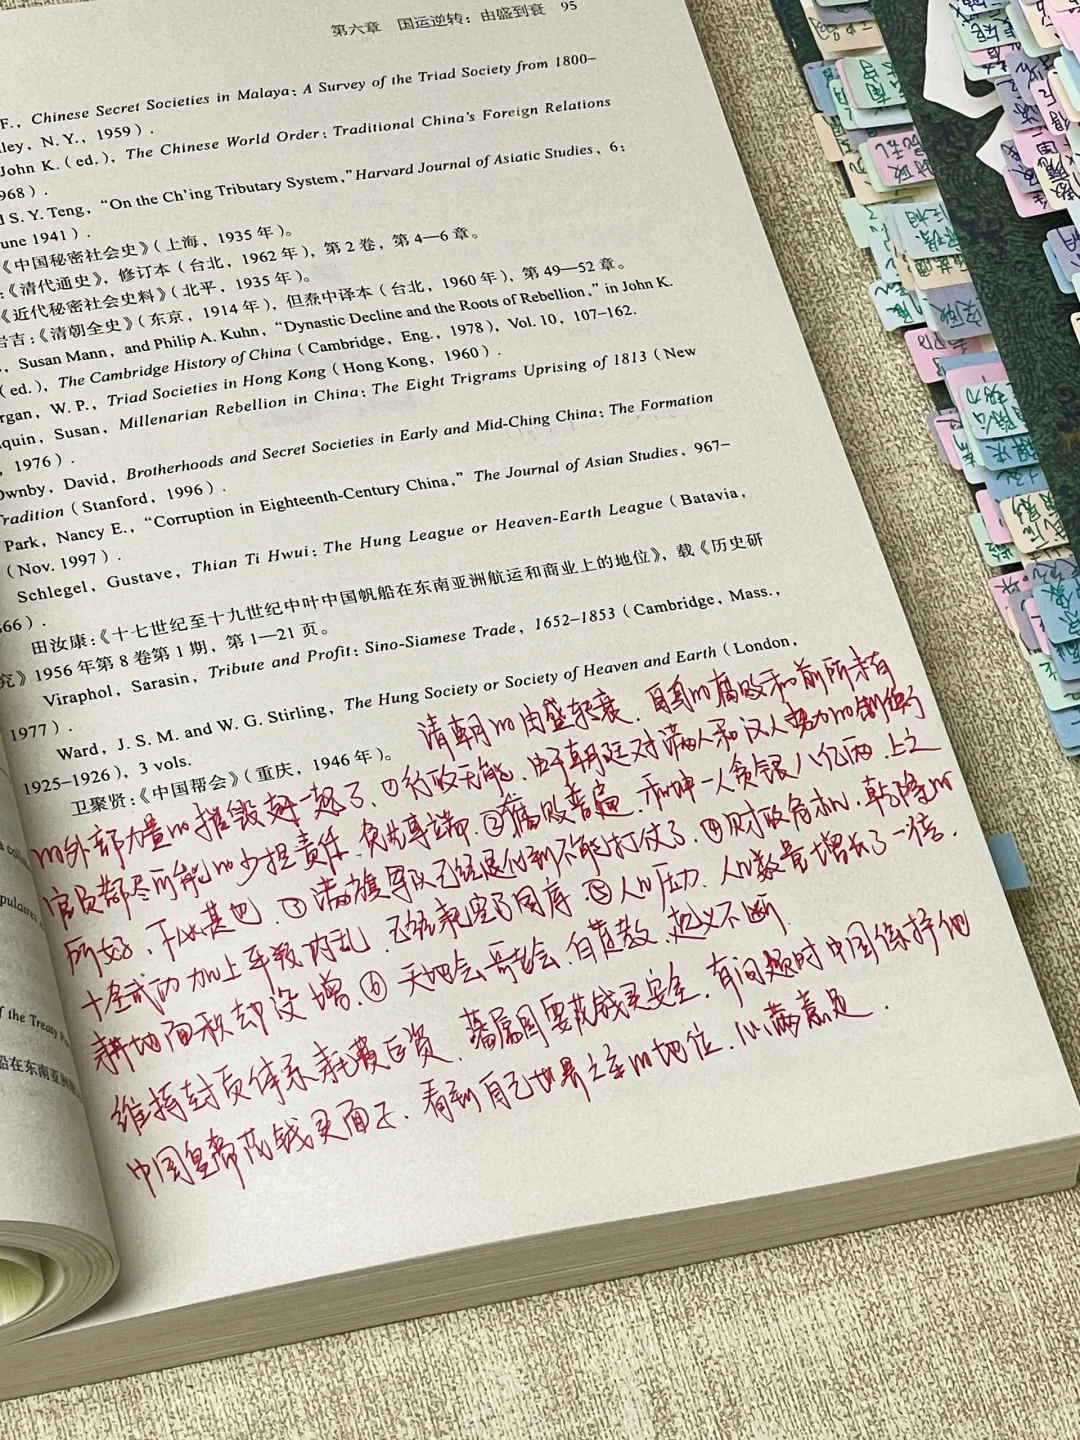 第六章 国运逆转：由盛到衰 95
F., Chinese Secret Societies in Malaya: A Survey of the Triad Society from 1800–
ley, N. Y., 1959).
John K. (ed.), The Chinese World Order: Traditional China's Foreign Relations
968).
d S. Y. Teng, “On the Ch'ing Tributary System,” Harvard Journal of Asiatic Studies, 6:
une 1941).
《中国秘密社会史》(上海，1935 年)。
：《清代通史》，修订本 (台北，1962 年)，第 2 卷，第 4—6 章。
《近代秘密社会史料》(北平，1935 年)。
岩吉：《清朝全史》(东京，1914 年)，但焘中译本 (台北，1960 年)，第 49—52 章。
, Susan Mann, and Philip A. Kuhn, “Dynastic Decline and the Roots of Rebellion,” in John K.
(ed.), The Cambridge History of China (Cambridge, Eng., 1978), Vol. 10, 107–162.
rgan, W. P., Triad Societies in Hong Kong (Hong Kong, 1960).
quin, Susan, Millenarian Rebellion in China: The Eight Trigrams Uprising of 1813 (New
, 1976).
Ownby, David, Brotherhoods and Secret Societies in Early and Mid-Ching China: The Formation
Tradition (Stanford, 1996).
Park, Nancy E., “Corruption in Eighteenth-Century China,” The Journal of Asian Studies, 967–
(Nov. 1997).
Schlegel, Gustave, Thian Ti Hwui: The Hung League or Heaven-Earth League (Batavia,
66).
田汝康：《十七世纪至十九世纪中叶中国帆船在东南亚洲航运和商业上的地位》，载《历史研
究》1956 年第 8 卷第 1 期，第 1—21 页。
Viraphol, Sarasin, Tribute and Profit: Sino-Siamese Trade, 1652–1853 (Cambridge, Mass.,
1977).
Ward, J. S. M. and W. G. Stirling, The Hung Society or Society of Heaven and Earth (London,
1925–1926), 3 vols.
卫聚贤：《中国帮会》(重庆，1946 年)。
清朝的由盛转衰．自身的腐败和前所未有
的外部力量的摧毁赶一起了．①行政无能．由于朝廷对满人和汉人势力的制衡
官员都尽可能的少担责任．负点事端．②腐败普遍．和珅一人贪银八亿两．上之
所好．下必甚也．③满旗军队已经退化到不能打仗了．④财政危机．乾隆的
十全武功加上平叛内乱．已经耗空了国库．⑤人口压力．人口数量增长了一倍．
耕地面积却没增．⑥天地会．哥老会．白莲教．起义不断．
维持封贡体系耗费巨资．藩属国要花钱买安全．有问题时中国保护他
中国皇帝花钱买面子．看到自己世界之主的地位．心满意足．
f the Treaty
船在东南亚洲